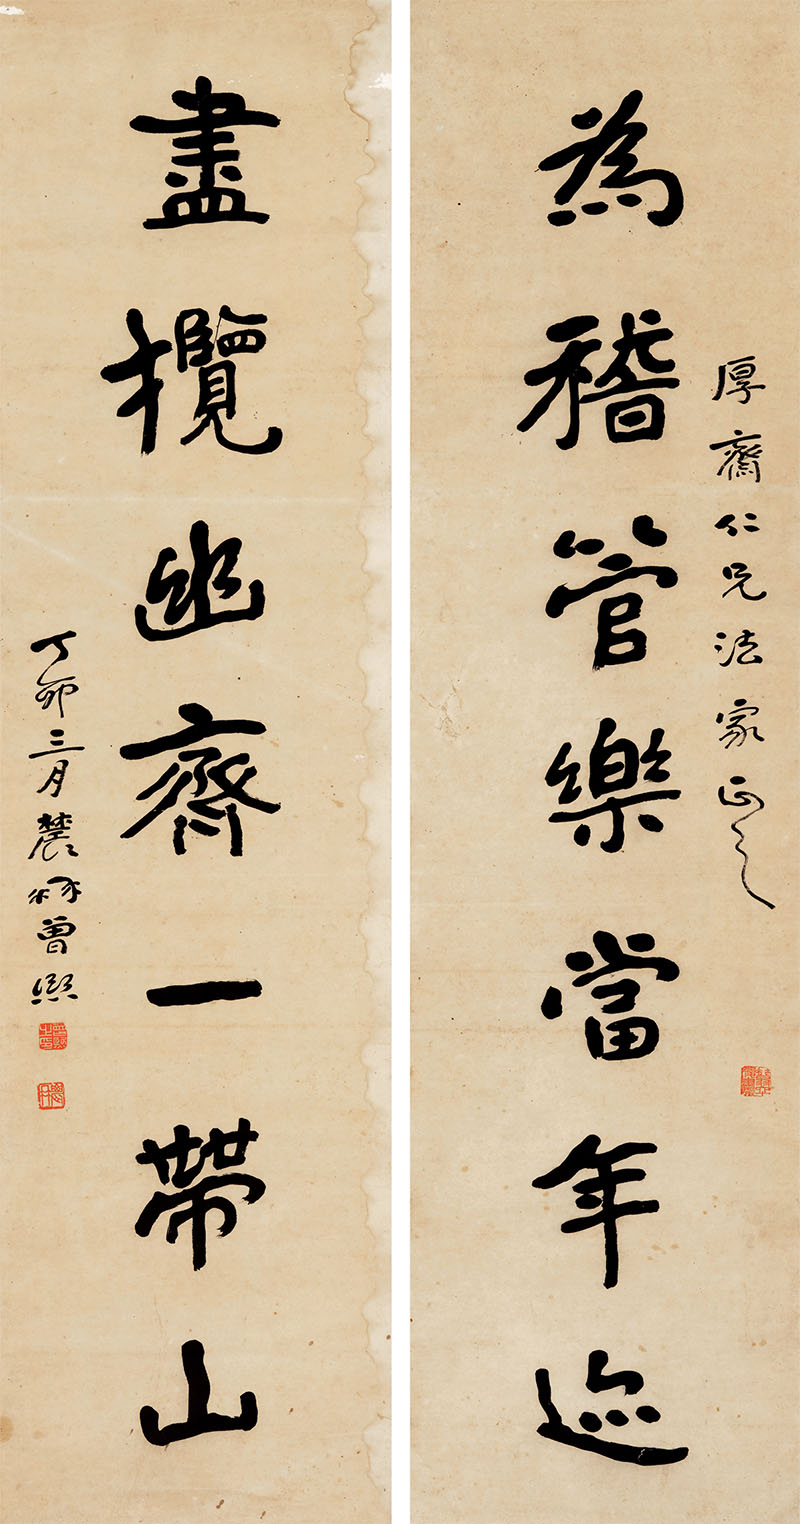 厚齋仁兄法家正之
為稽管樂當年迹
盡攬幽齋一帶山
丁卯三月農髯曾熙